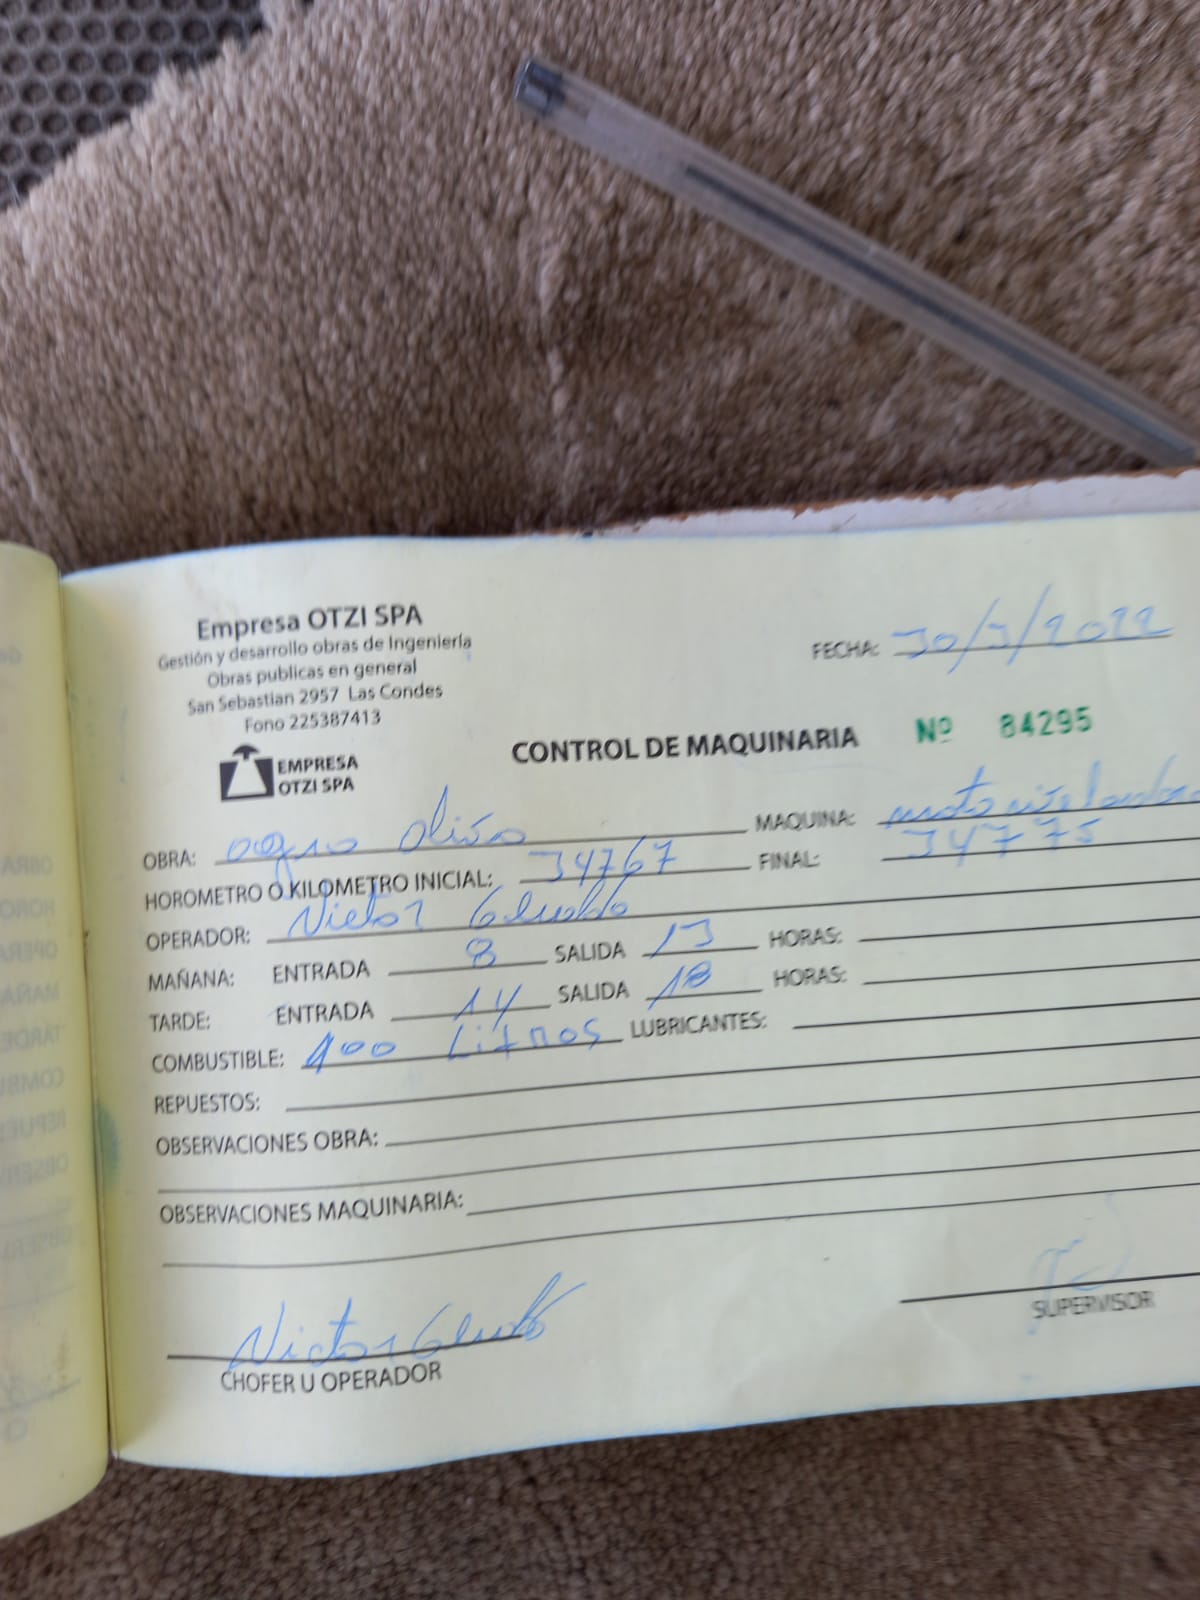 Empresa OTZI SPA
Gestión y desarrollo obras de Ingeniería
Obras publicas en general
San Sebastian 2957 Las Condes
Fono 225387413
EMPRESA
OTZI SPA
FECHA: 30/3/2022
CONTROL DE MAQUINARIA Nº 84295
OBRA: MAQUINA: motoniveladora
HOROMETRO O KILOMETRO INICIAL: 34767 FINAL: 34775
OPERADOR: Victor
MAÑANA: ENTRADA 8 SALIDA 13 HORAS:
TARDE: ENTRADA 14 SALIDA 18 HORAS:
COMBUSTIBLE: 400 Litros LUBRICANTES:
REPUESTOS:
OBSERVACIONES OBRA:
OBSERVACIONES MAQUINARIA:
Victor
CHOFER U OPERADOR
SUPERVISOR